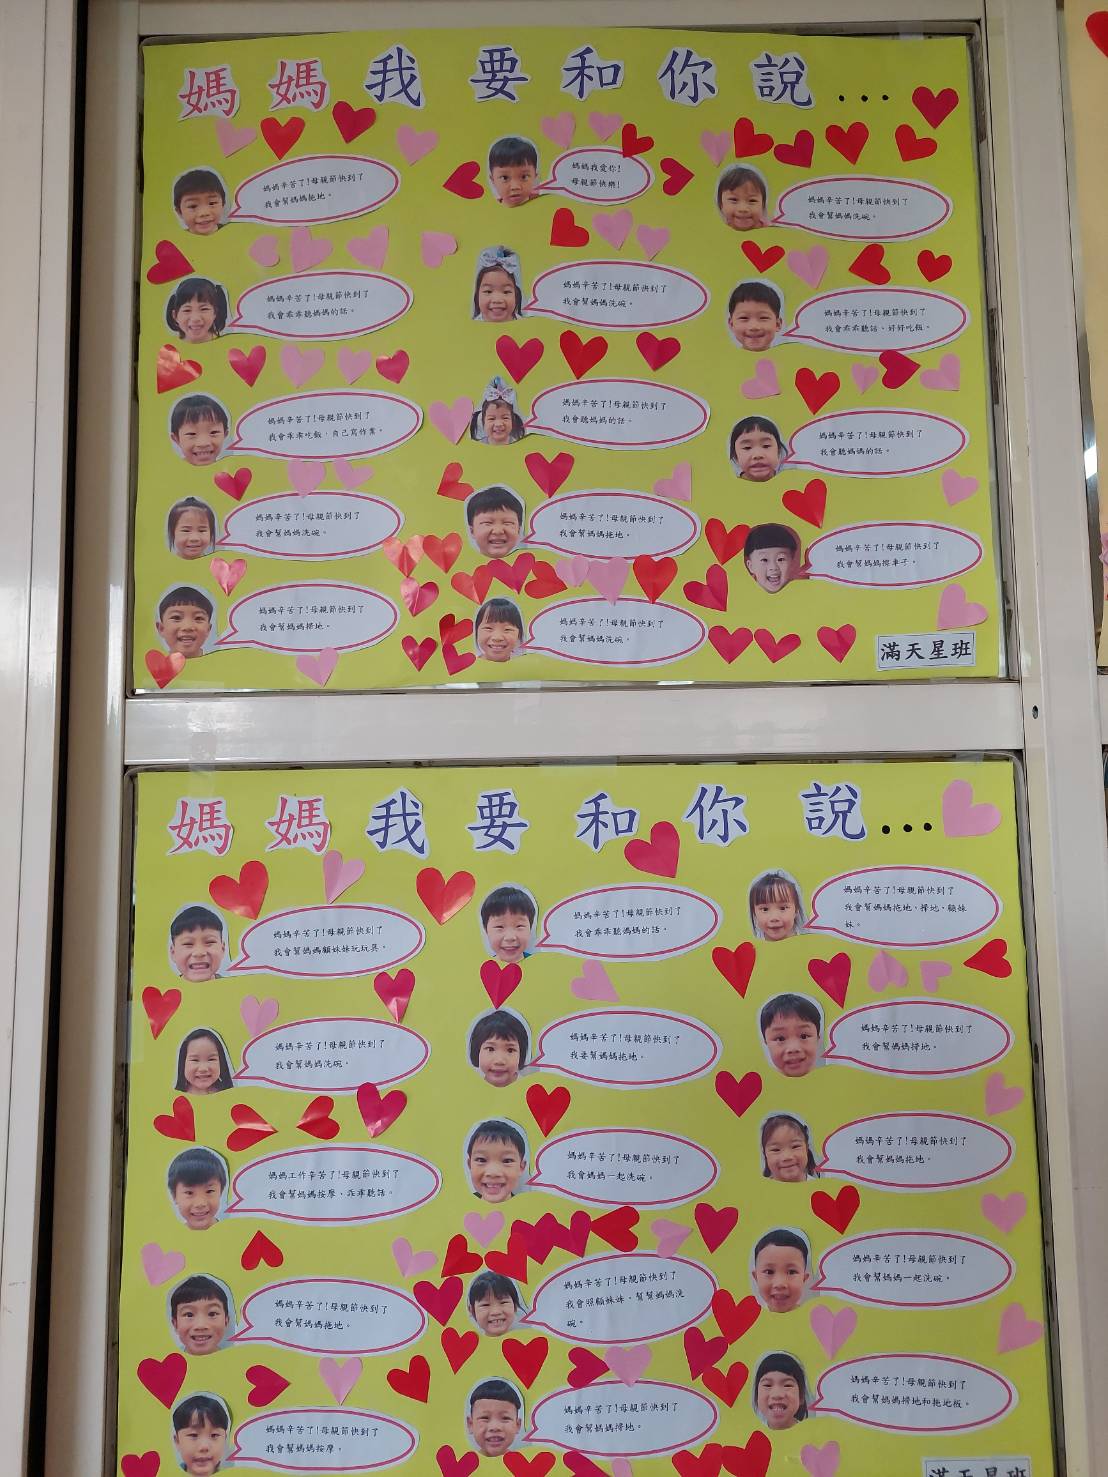 媽媽我要和你說...
媽媽辛苦了!母親節快到了
我會幫媽媽拖地。
媽媽我愛你!
母親節快樂!
媽媽辛苦了!母親節快到了
我會幫媽媽洗碗。
媽媽辛苦了!母親節快到了
我會乖乖聽媽媽的話。
媽媽辛苦了!母親節快到了
我會幫媽媽洗碗。
媽媽辛苦了!母親節快到了
我會乖乖聽話、好好吃飯。
媽媽辛苦了!母親節快到了
我會乖乖吃飯、自己寫作業。
媽媽辛苦了!母親節快到了
我會聽媽媽的話。
媽媽辛苦了!母親節快到了
我會聽媽媽的話。
媽媽辛苦了!母親節快到了
我會幫媽媽洗碗。
媽媽辛苦了!母親節快到了
我會幫媽媽拖地。
媽媽辛苦了!母親節快到了
我會幫媽媽擦車子。
媽媽辛苦了!母親節快到了
我會幫媽媽掃地。
媽媽辛苦了!母親節快到了
我會幫媽媽洗碗。
滿天星班
媽媽我要和你說...
媽媽辛苦了!母親節快到了
我會幫媽媽顧妹妹玩玩具。
媽媽辛苦了!母親節快到了
我會乖乖聽媽媽的話。
媽媽辛苦了!母親節快到了
我會幫媽媽拖地、掃地、顧妹
妹。
媽媽辛苦了!母親節快到了
我會幫媽媽洗碗。
媽媽辛苦了!母親節快到了
我要幫媽媽拖地。
媽媽辛苦了!母親節快到了
我會幫媽媽掃地。
媽媽工作辛苦了!母親節快到了
我會幫媽媽按摩、乖乖聽話。
媽媽辛苦了!母親節快到了
我會媽媽一起洗碗。
媽媽辛苦了!母親節快到了
我會幫媽媽拖地。
媽媽辛苦了!母親節快到了
我會幫媽媽拖地。
媽媽辛苦了!母親節快到了
我會照顧妹妹、幫幫媽媽洗
碗。
媽媽辛苦了!母親節快到了
我會幫媽媽一起洗碗。
媽媽辛苦了!母親節快到了
我會幫媽媽按摩。
媽媽辛苦了!母親節快到了
我會幫媽媽掃地。
媽媽辛苦了!母親節快到了
我會幫媽媽掃地和拖地板。
滿天星班